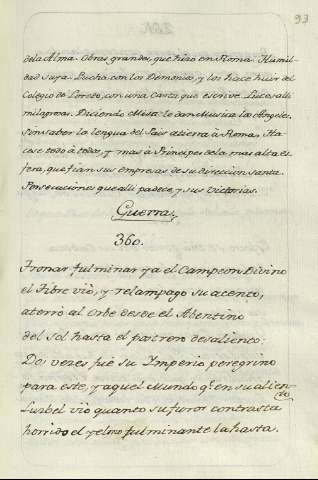 93
dela Alma. Obras grandes, que hizo en Roma. Humil-
dad suya. Lucha con los Demonios, y los hace huir del
Colegio de Loreto, con una Carta, que escrive. Luces alli
milagrosas. Diciendo Missa le dan Musica los Angeles.
Sin saber la lengua del Pais atierra à Roma. Ha-
cese todo à todos, y mas à Principes de la mas alta es-
fera, que fian sus empresas de su direccion santa.
Persecuciones que alli padece, y sus victorias.
Guerra,
360.
Tronar fulminar ya el Campeon Divino
el Tibre viò, y relampago su acento,
aterrò al Orbe desde el Abentino
del sol hasta el postrero desaliento:
Dos vezes fuè su Imperio peregrino
para este, y aquel Mundo qe. en su alien-
(to)
Luzbel viò quanto su furor contrasta
horrido el yelmo fulminante la hasta.